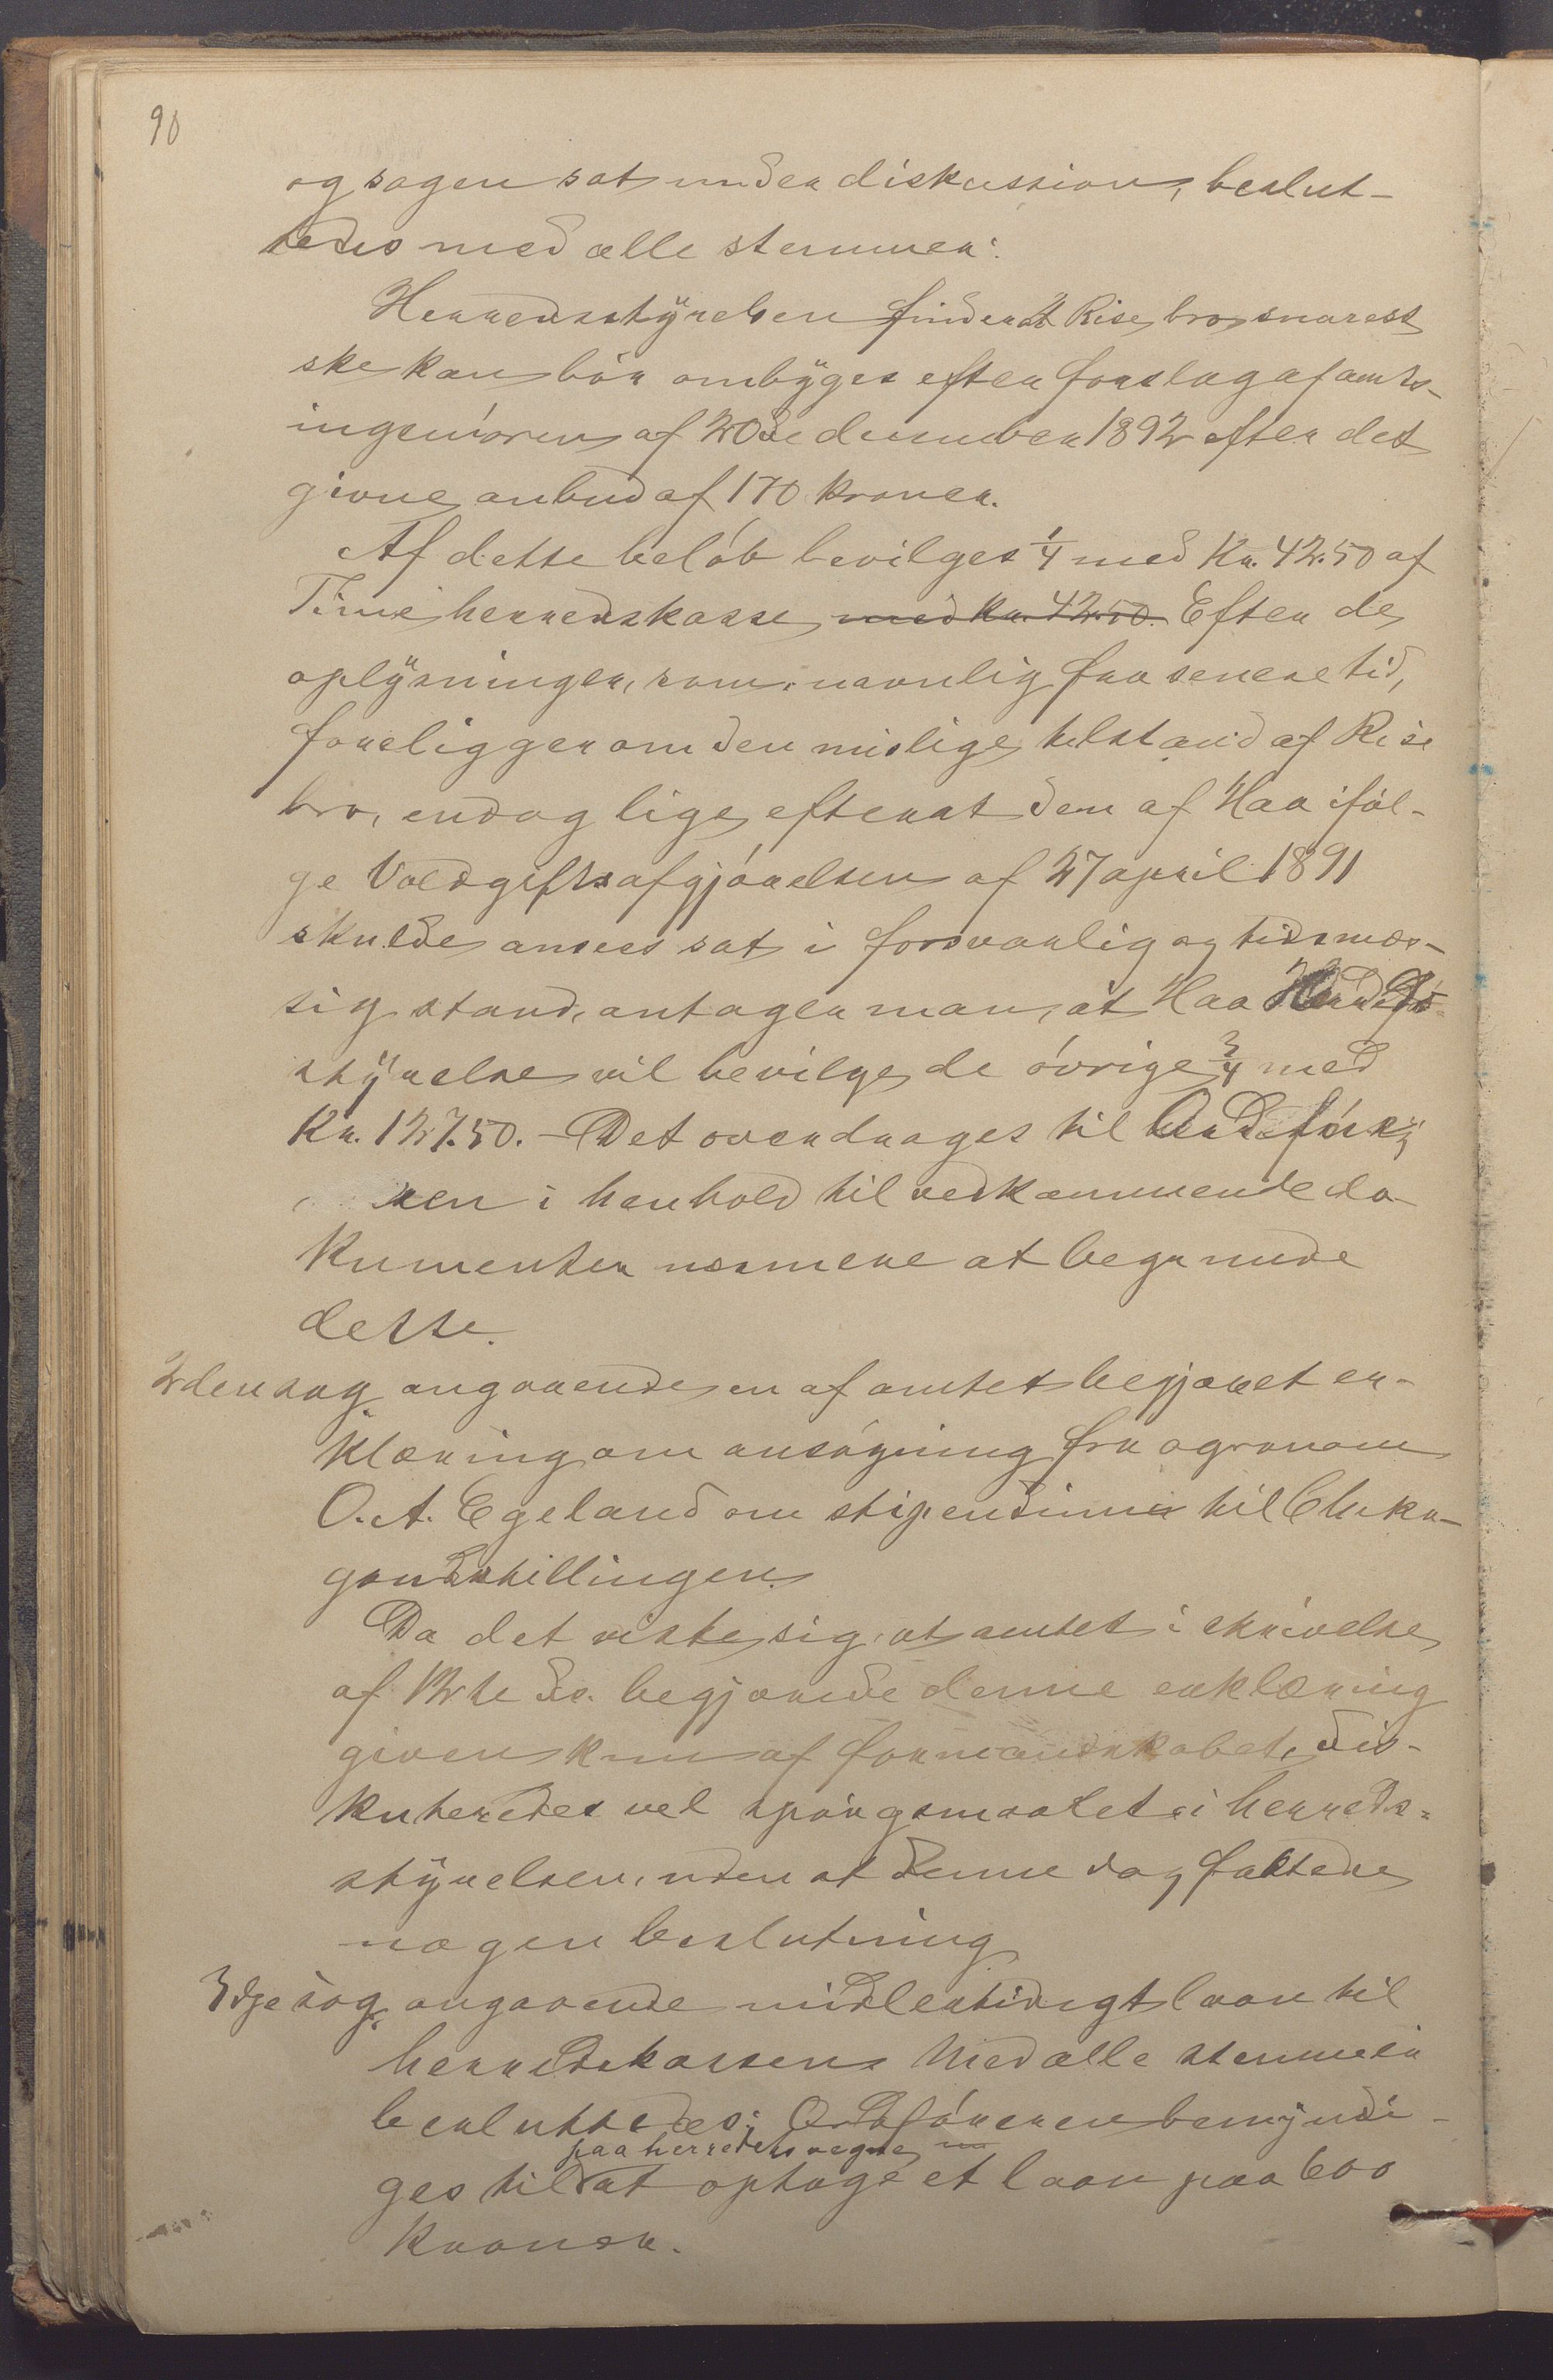 90
og sagen sat under diskussion, beslut-
tedes med alle stemmer:
Herredsstÿrelsen finder at Rise bro snarest
ske kan bör ombÿges efter forslag af amts-
ingeniören af 20de december 1892 efter det
givne anbud af 170 kroner.
Af dette belöb bevilges 1/4 med Kr. 42.50 af
Time herredskasse med kr. 42.50. Efter de
oplÿsninger, som, navnlig fra senere tid,
foreligger om den mislige tilstand af Rise
bro, endog lige efterat den af Haa iföl-
ge Voldgiftsafgjörelsen af 27 april 1891
skulde ansees sat i forsvarlig og tidsmæs-
sig stand, antager man, at Haa Herreds-
stÿrelse vil bevilge de övrige 3/4 med
Kr. 127.50. - Det overdrages til Ordföre-
ren i henhold til vedkommende do-
kumenter nærmere at begrunde
dette.
2den sag angaaende en af amtet begjæret er-
klæring om ansögning fra agronom
O. A. Egeland om stipendium til Chika-
goudstillingen.
Da det viste sig, at amtet i skrivelse
af 12te ds. begjærede denne erklæring
given kun af formandskabet, dis-
kuteredes vel spörgsmaalet i herreds-
stÿrelsen, uden at denne dog fattede
nogen beslutning
3dje sag angaaende midlertidigt laan til
herredskassen. Med alle stemmer
besluttedes: Ordföreren bemÿndi-
paa herredets vegne
ges til at optage et laan paa 600
kroner.